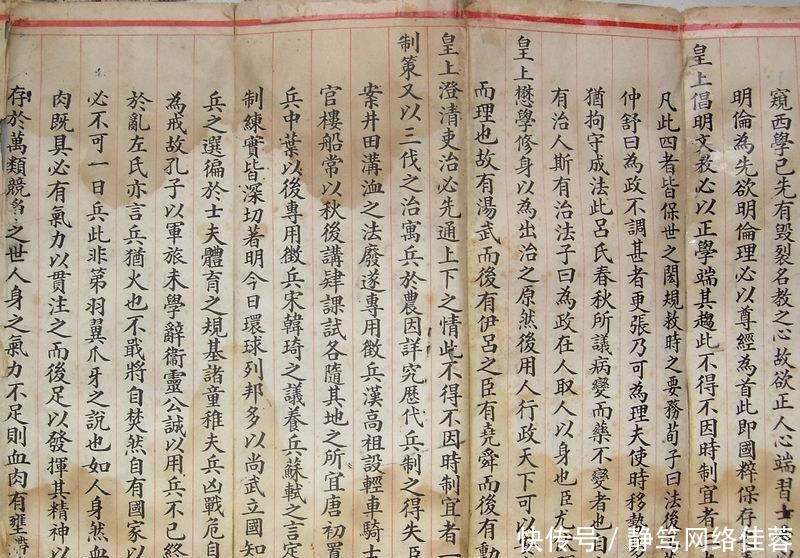 窺西學已先有毀裂名教之心故欲正人心端習士
明倫為先欲明倫理必以尊經為首此即國粹保存
皇上倡明文教必以正學端其趨此不得不因時制宜者
凡此四者皆保世之閎規救時之要務荀子曰法後
仲舒曰為政不調甚者更張乃可為理夫使時移勢
猶拘守成法此呂氏春秋所議病變而藥不變者也
有治人斯有治法子曰為政在人取人以身也臣尤
皇上懋學修身以為出治之原然後用人行政天下可以
而理也故有湯武而後有伊呂之臣有堯舜而後有勳
皇上澄清吏治必先通上下之情此不得不因時制宜者一
制策又以三代之治寓兵於農因詳究歷代兵制之得失臣
案井田溝洫之法廢遂專用徵兵漢高祖設輕車騎士
官樓船常以秋後講肄課試各隨其地之所宜唐初置
兵中葉以後專用徵兵宋韓琦之議養兵蘇軾之言定
制練實皆深切著明今日環球列邦多以尚武立國知
兵之選徧於士夫體育之規基諸童稚夫兵凶戰危自
為戒故孔子以軍旅未學辭衛靈公誠以用兵不已終
於亂左氏亦言兵猶火也不戢將自焚然自有國家以
必不可一日兵此非第羽翼爪牙之說也如人身然血
肉既具必有氣力以貫注之而後足以發揮其精神以
存於萬類競名之世人身之氣力不足則血肉有壅滯
快传号/静笃网络佳蓉